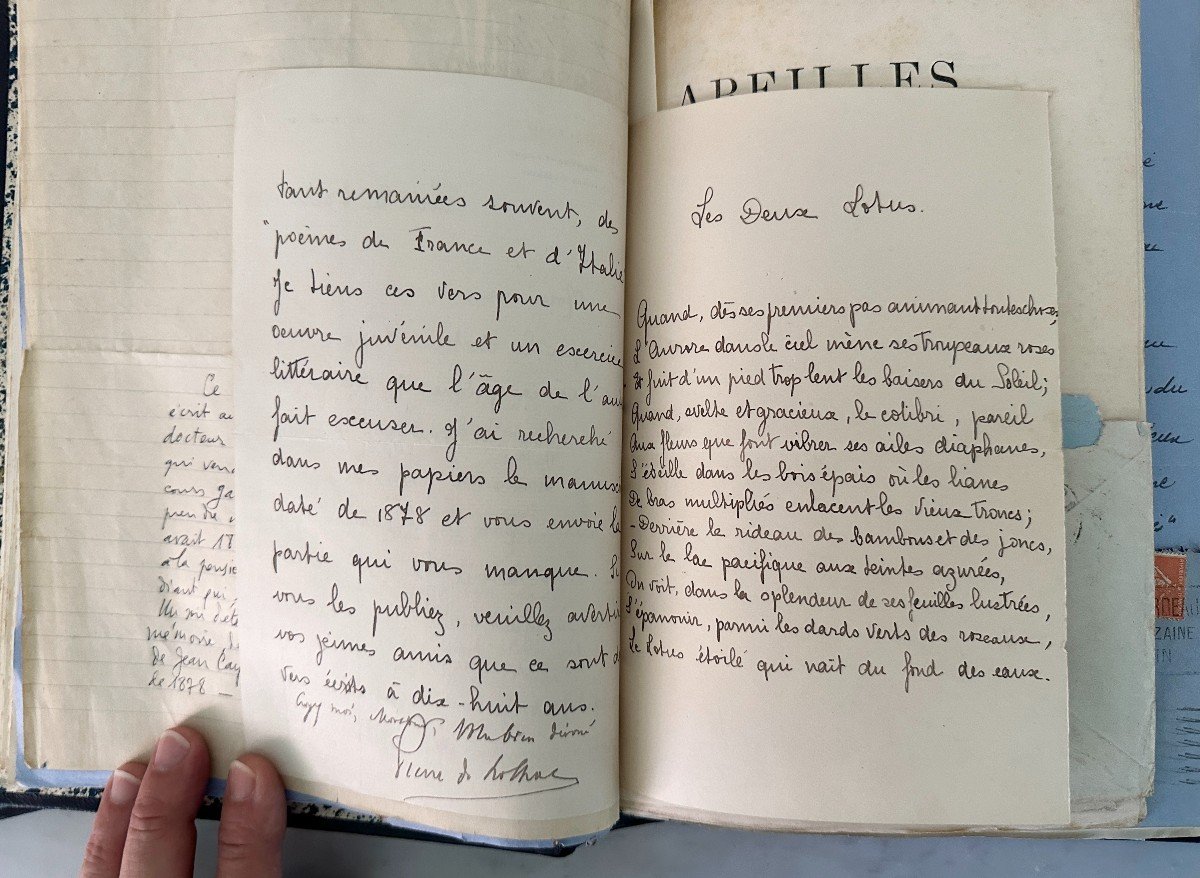 tant remaniées souvent, des
"poèmes de France et d'Italie
Je tiens ces vers pour une
œuvre juvénile et un exercice
littéraire que l'âge de l'au
fait excuser. J'ai recherché
dans mes papiers le manusc
daté de 1878 et vous envoie la
partie qui vous manque. Si
vous les publiez, veuillez avertir
vos jeunes amis que ce sont d
vers écrits à dix-huit ans.
moi,
Pierre de Nolhac
ABEILLES
Les Deux Lotus.
Quand, dès ses premiers pas animant toutes choses,
L'Aurore dans le ciel mène ses troupeaux roses
Et fuit d'un pied trop lent les baisers du Soleil;
Quand, svelte et gracieux, le colibri, pareil
Aux fleurs que font vibrer ses ailes diaphanes,
S'éveille dans les bois épais où les lianes
De bras multipliés enlacent les vieux troncs;
- Derrière le rideau des bambous et des joncs,
Sur le lac pacifique aux teintes azurées,
On voit, dans la splendeur de ses feuilles lustrées,
S'épanouir, parmi les dards verts des roseaux,
Le Lotus étoilé qui naît du fond des eaux.
Ce
écrit au
docteur
qui
cours
prendre
avait 17
à la pensi
mémoire
de Jean
de 1878 —
du
ZAINE
IN